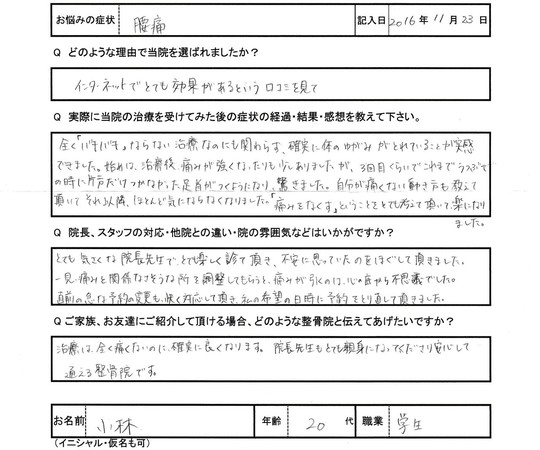 お悩みの症状 腰痛 記入日 2016年 11月 23日
Q どのような理由で当院を選ばれましたか？
インターネットでとても効果があるという口コミを見て
Q 実際に当院の治療を受けてみた後の症状の経過・結果・感想を教えて下さい。
全く「バキバキ」ならない治療なのにも関わらず、確実に体のゆがみがとれていることが実感
できました。始めは、治療後、痛みが強くなったりも少しありましたが、3回目くらいでこれまでうつぶせ
の時に片方だけつかなかった足首がつくようになり、驚きました。自分が痛くない動き方も教えて
頂いてそれ以降、ほとんど気にならなくなりました。「痛みをなくす」ということをとても考えて頂いて、楽になり
ました。
Q 院長、スタッフの対応・他院との違い・院の雰囲気などはいかがですか？
とても気さくな院長先生で、とても楽しく診て頂き、不安に思っていたのをほぐして頂きました。
一見痛みと関係なさそうな所を調整してもらうと、痛みが引くのは、心の底から不思議でした。
直前の急な予約の変更も、快く対応して頂き、私の希望の日時に予約をとり直して頂きました。
Q ご家族、お友達にご紹介して頂ける場合、どのような整骨院と伝えてあげたいですか？
治療は、全く痛くないのに、確実に良くなります。院長先生もとても親身になってくださり安心して
通える整骨院です。
お名前 小林 年齢 20代 職業 学生
(イニシャル・仮名も可)